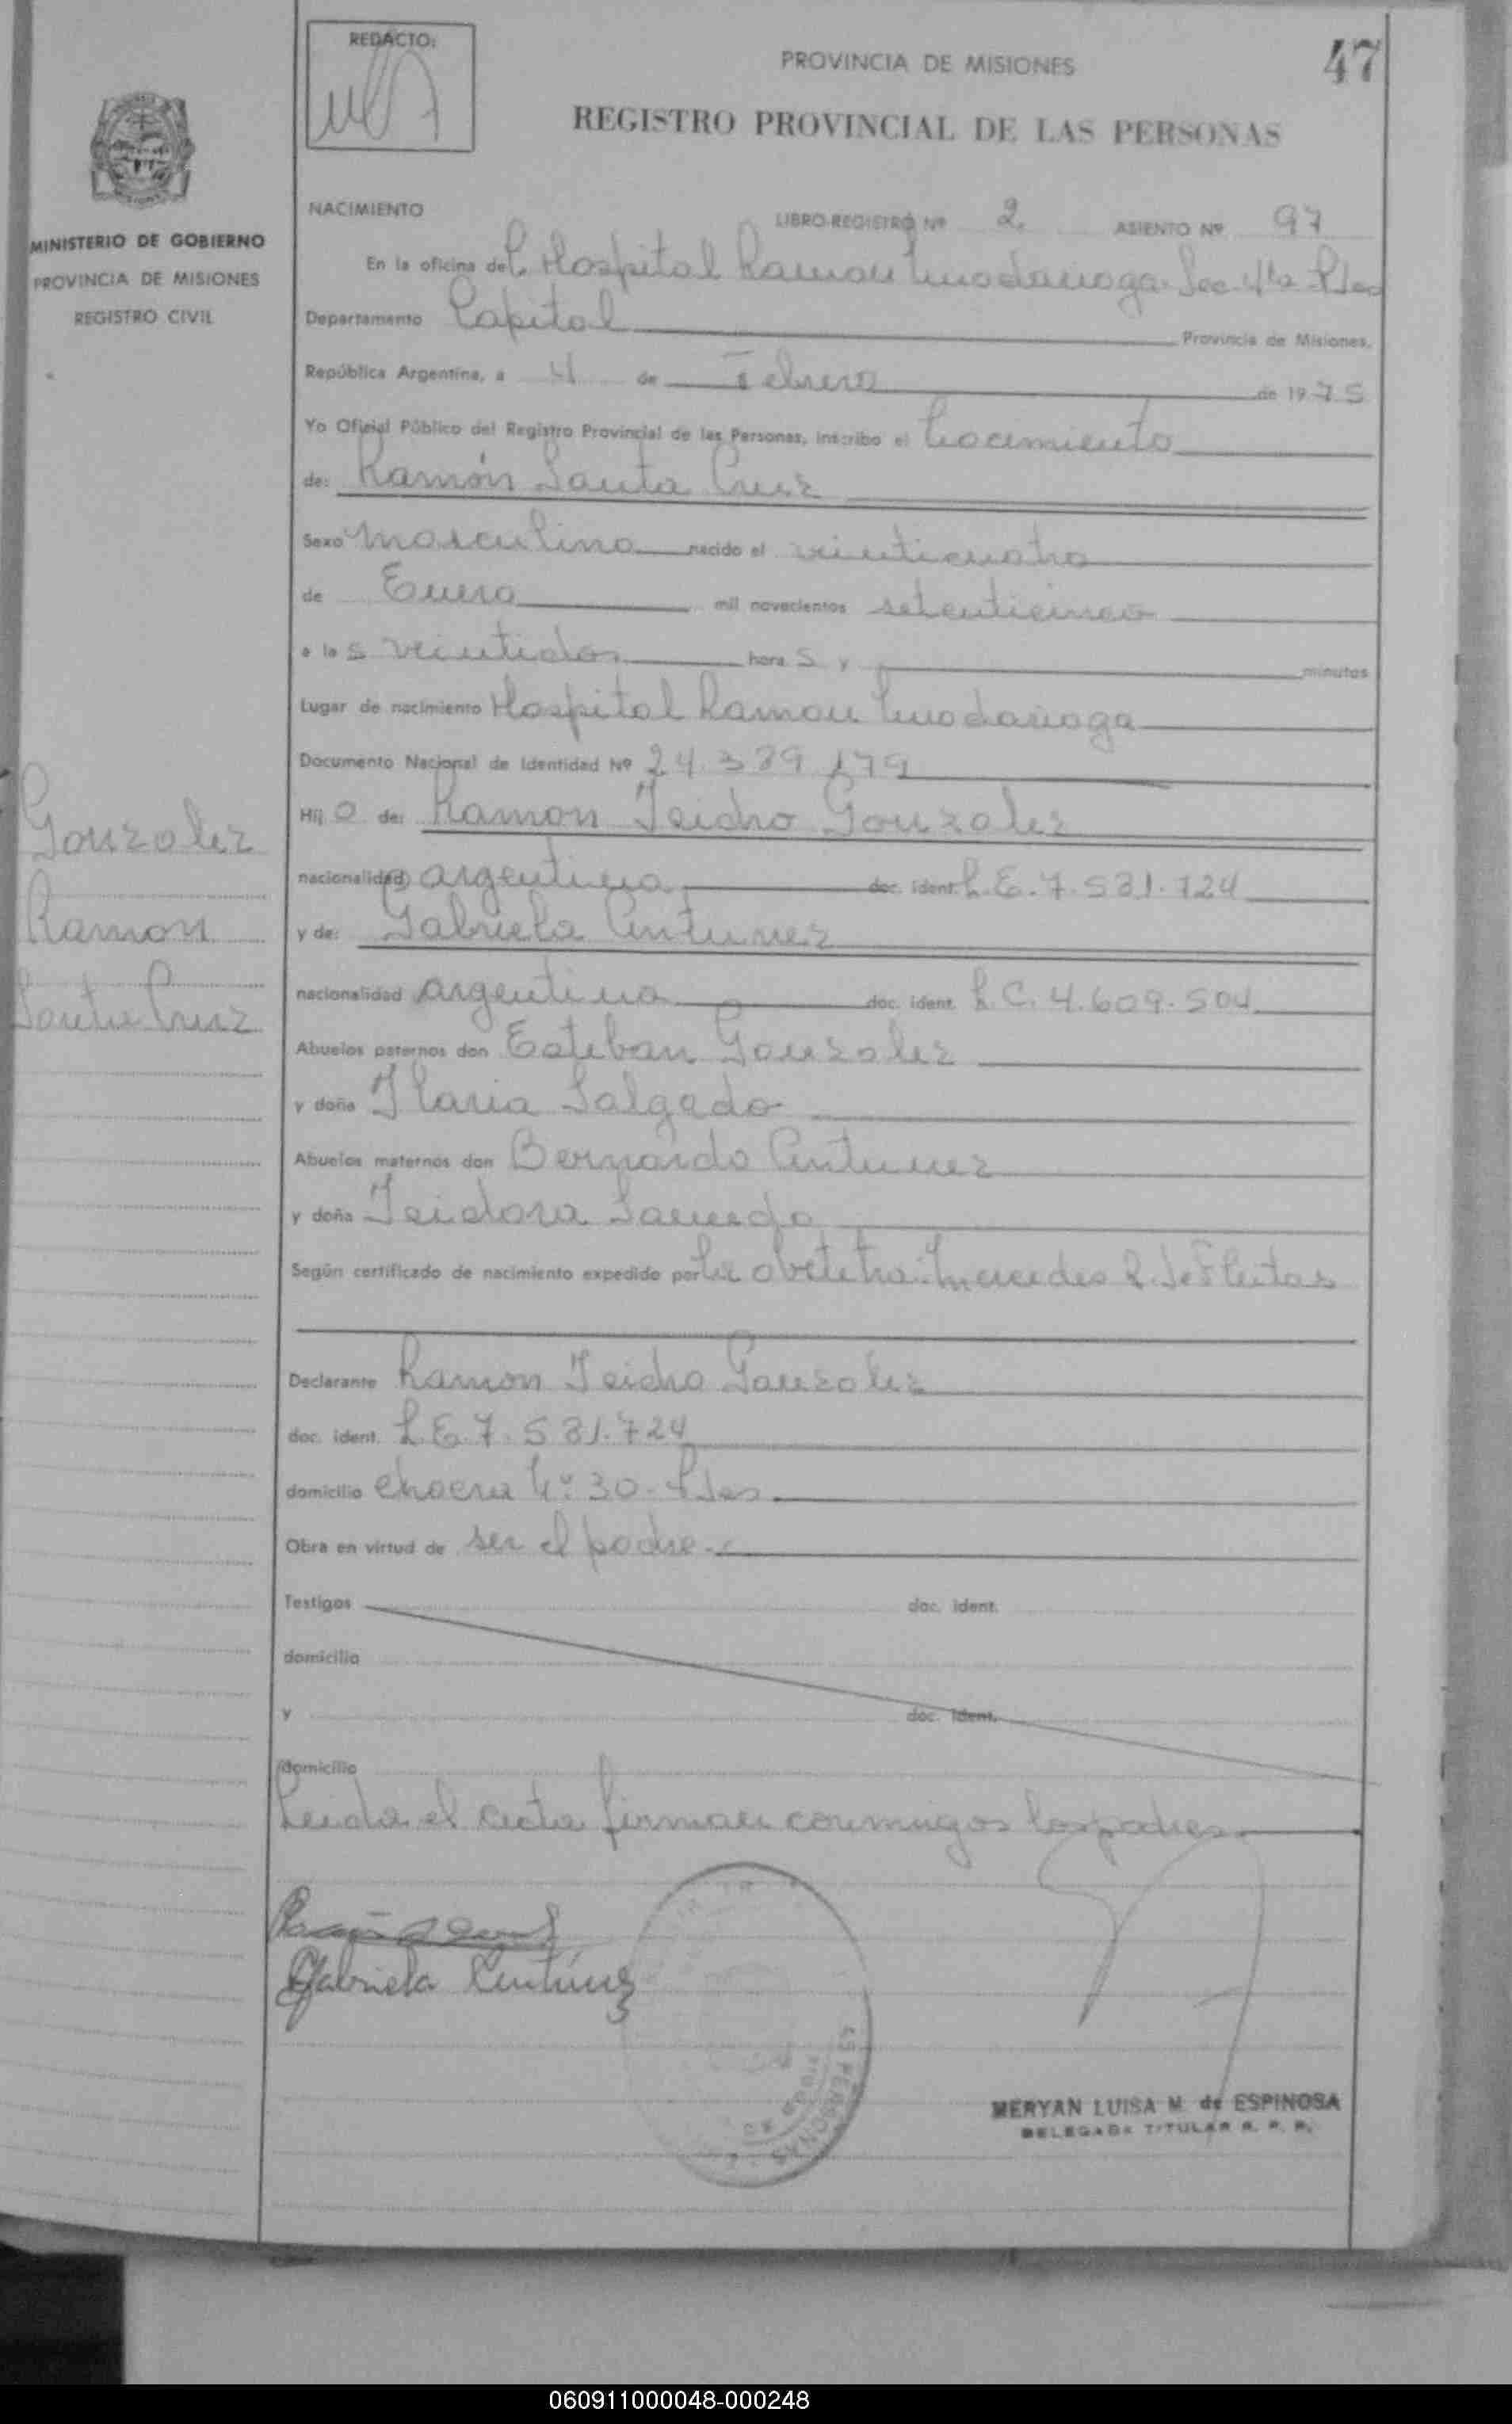 REDACTO:
PROVINCIA DE MISIONES
47
REGISTRO PROVINCIAL DE LAS PERSONAS
MINISTERIO DE GOBIERNO
PROVINCIA DE MISIONES
REGISTRO CIVIL
NACIMIENTO
LIBRO-REGISTRO Nº 2. ASIENTO Nº 97
En la oficina del Hospital Ramon Madariaga. Sec. 4ta
Departamento Capital Provincia de Misiones.
República Argentina, a 4 de Febrero de 1975
Yo Oficial Público del Registro Provincial de las Personas, inscribo el Nacimiento
de: Ramón Santa Cruz
Sexo masculino nacido el veinticuatro
de Enero mil novecientos setenticinco
a las veintidos horas y minutos
Lugar de nacimiento Hospital Ramon Madariaga
Documento Nacional de Identidad Nº 24.339.179
Hijo de: Ramon Isidro Gonzalez
nacionalidad argentina doc. ident. L.E. 7.531.724
y de: Gabriela Antunez
nacionalidad argentina doc. ident. L.C. 4.609.504
Abuelos paternos don Esteban Gonzalez
y doña Ilaria Salgado
Abuelos maternos don Bernardo Antunez
y doña Isidora
Según certificado de nacimiento expedido por la obstetra: Mercedes R. de Fleitas
Declarante Ramon Isidro Gonzalez
doc. ident. L E 7.531.724
domicilio chacra Nº 30 - Pdas
Obra en virtud de ser el padre
Testigos doc. ident.
domicilio
y doc. ident.
domicilio
Leida el acta firman conmigos los padres
Gabriela Antúnez
MERYAN LUISA M. de ESPINOSA
DELEGADA TITULAR R. P. P.
Gonzalez
Ramon
Santa Cruz
060911000048-000248